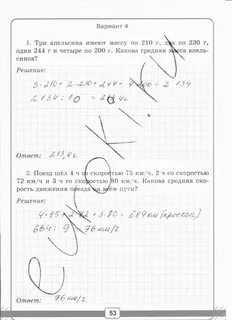 Вариант 4
1. Три апельсина имеют массу по 210 г, два по 230 г,
один 244 г и четыре по 200 г. Какова средняя масса апель-
синов?
Решение:
3·210 + 2·230 + 244 + 4·200 = 2134
2134 : 10 = 213,4г
Ответ: 213,4г
2. Поезд шёл 4 ч со скоростью 75 км/ч, 2 ч со скоростью
72 км/ч и 3 ч со скоростью 80 км/ч. Какова средняя ско-
рость движения поезда на всём пути?
Решение:
4·75 + 2·72 + 3·80 = 684 км
684 : 9 = 76 км/ч
Ответ: 76 км/ч
53
euroki.ru